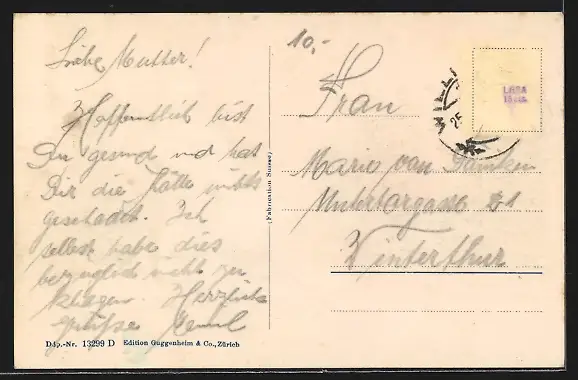 Liebe Mutter!
Hoffentlich bist
Du gesund und hat
Dir die Kälte nichts
geschadet. Ich
selbst habe dies
bezüglich nicht zu
klagen. Herzliche
Grüsse Emil
Dép.-Nr. 13299 D Edition Guggenheim & Co., Zürich
(Fabrication Suisse)
10,-
Frau
Marie van
Untertorgasse 21
Winterthur